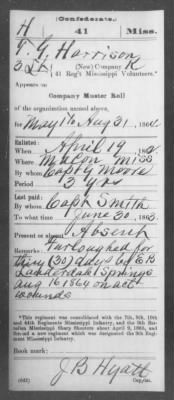 (Confederate.)
H 41 Miss.
T. G. Harrison
2 Lt, (New) Company K
41 Reg't Mississippi Volunteers.*
Appears on
Company Muster Roll
of the organization named above,
for May 1 to Aug 31, 1864.
Enlisted:
When April 19, 186
Where Macon Miss
By whom Capt Moore
Period 3 yrs
Last paid:
By whom Capt Smith
To what time June 30, 1863.
Present or absent Absent
Remarks: Furloughed for
thirty (30) days by E B
Lauderdale Springs
Aug 16 1864 on act
wounds
*This regiment was consolidated with the 7th, 9th, 10th
and 44th Regiments Mississippi Infantry, and the 9th Bat-
talion Mississippi Sharp Shooters about April 9, 1865, and
formed a new regiment which was designated the 9th Regi-
ment Mississippi Infantry.
Book mark:
J B Hyatt
(642) Copyist.